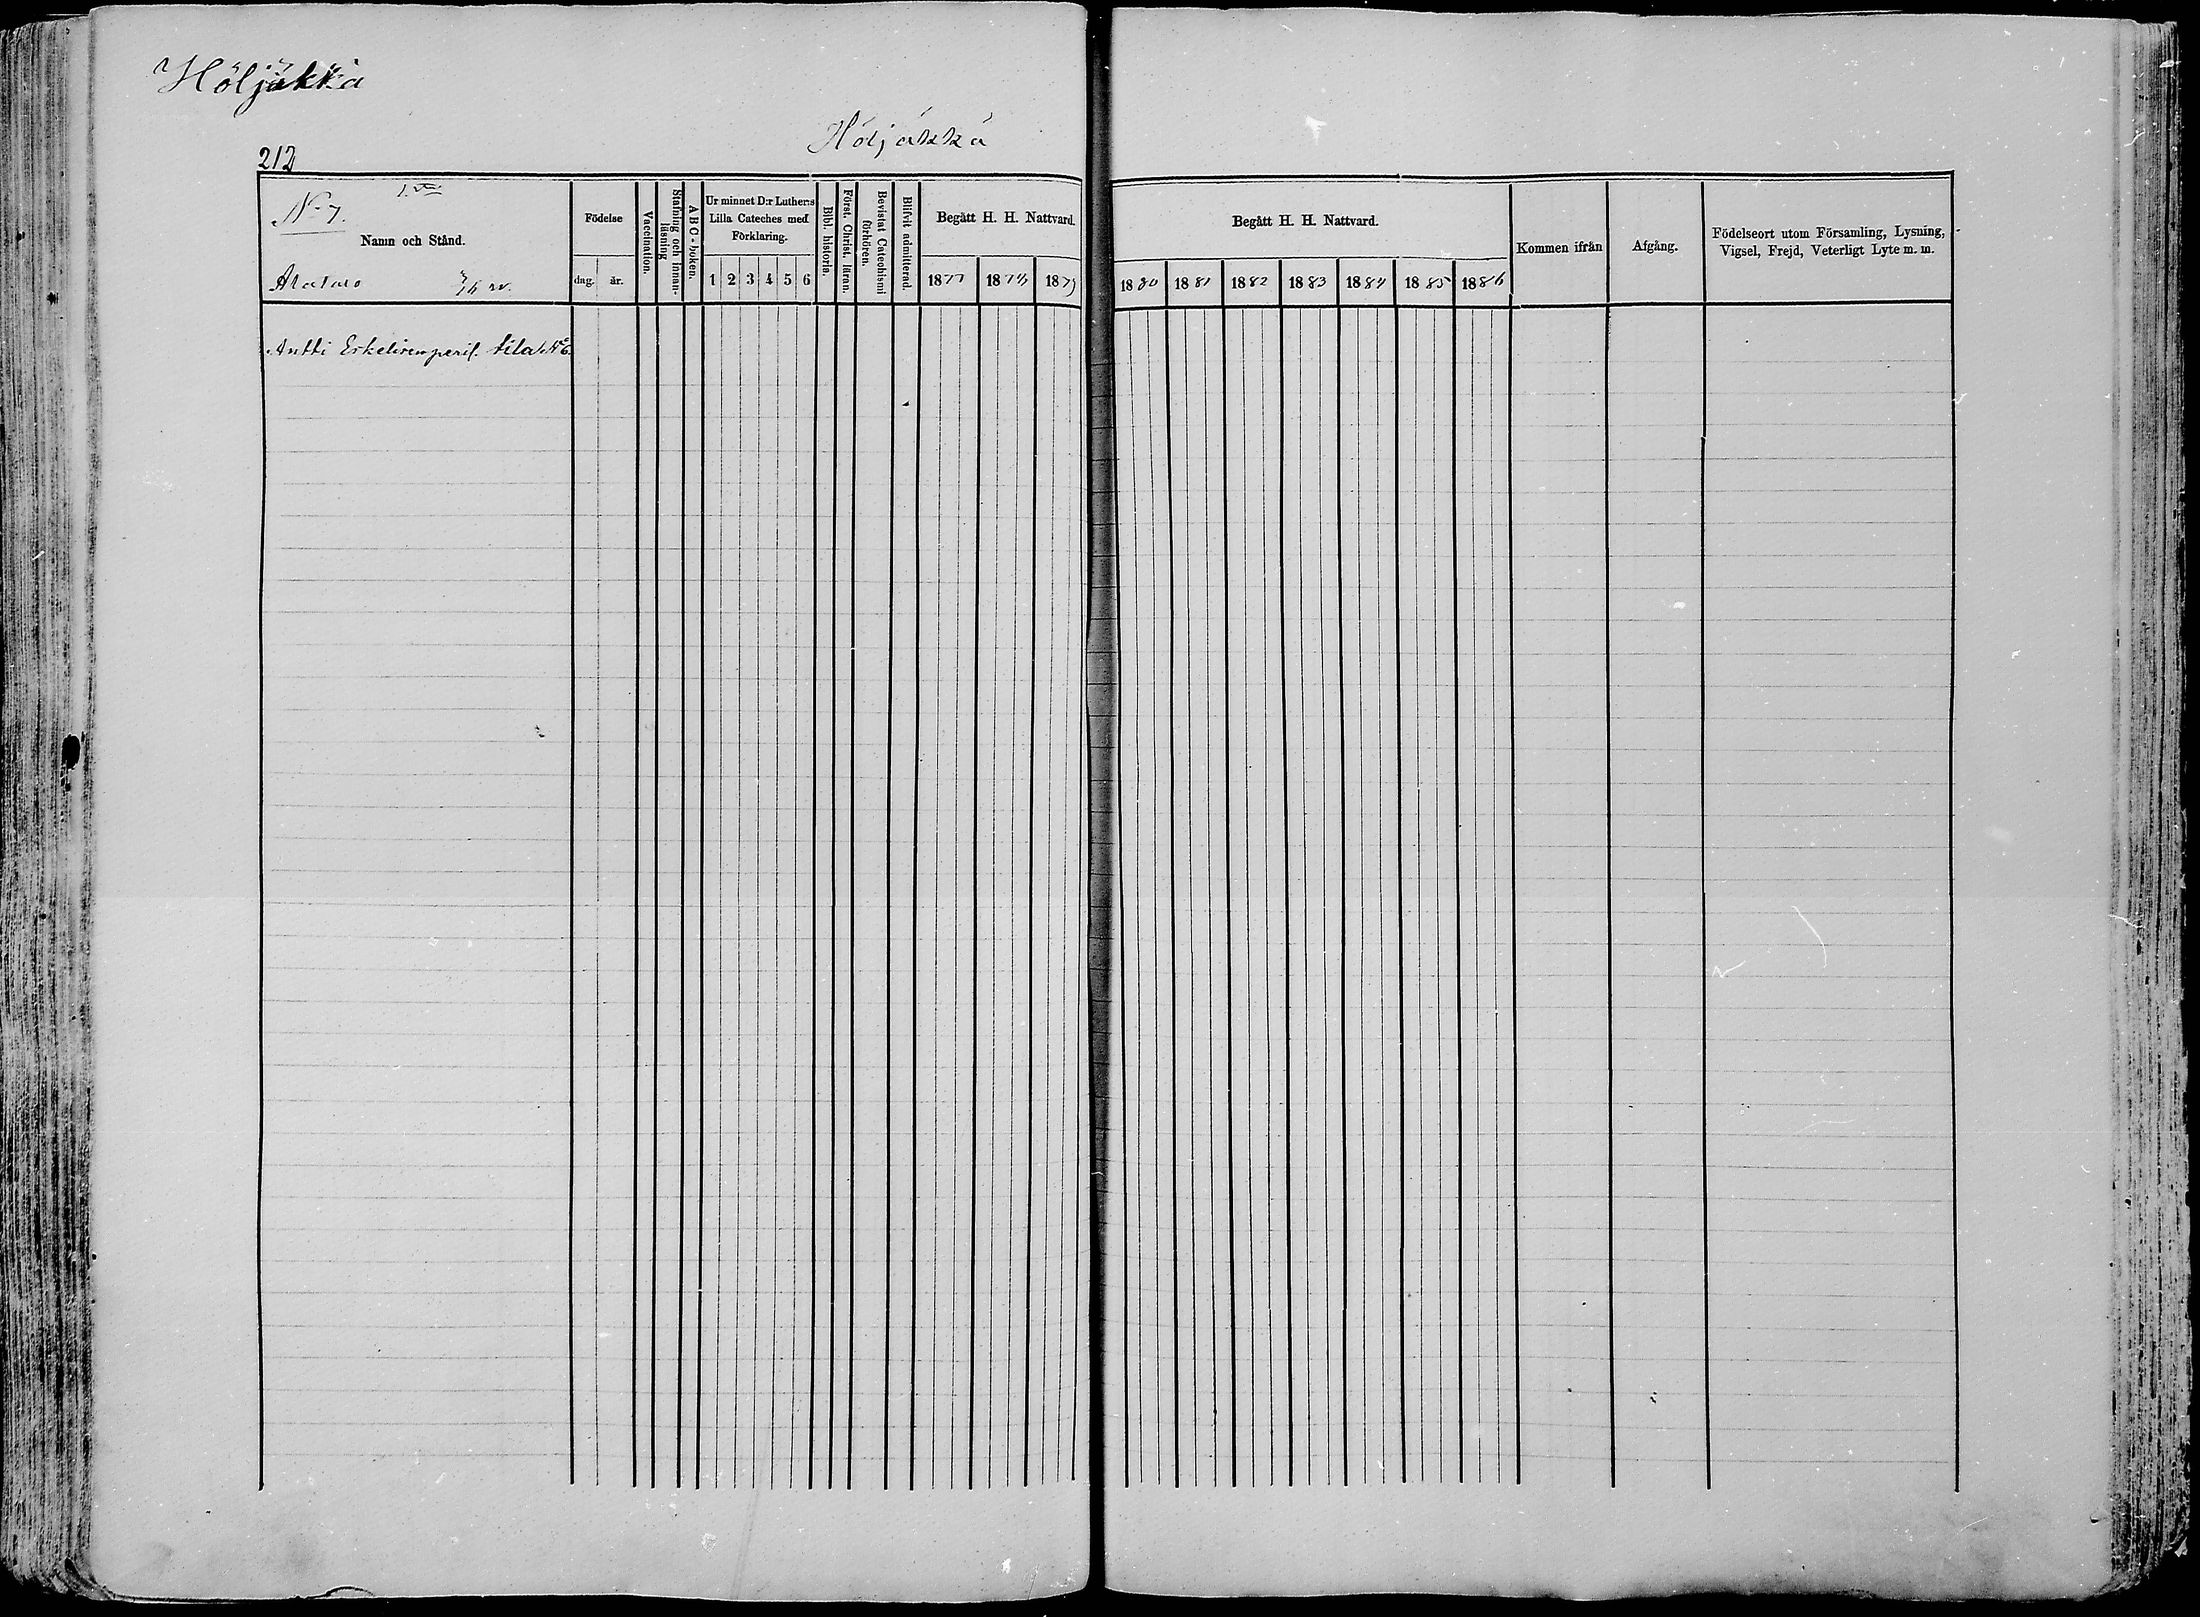 Höljäkkä
Höljäkkä
212
No 7.
Namn och Stånd.
Födelse
dag.
år.
Vaccination.
Stafning och innan-
läsning
ABC-boken.
Ur minnet D:r Luthers
Lilla Cateches med
Förklaring.
1 2 3 4 5 6
Bibl. historia.
Först. Christ. läran.
Bevistat Catechismi
förhören.
Blifvit admitterad.
Begått H. H. Nattvard.
1877 1878 1879
Begått H. H. Nattvard.
1880 1881 1882 1883 1884 1885 1886
Kommen ifrån
Afgång.
Födelseort utom Församling, Lysning,
Vigsel, Frejd, Veterligt Lyte m. m.
Antti Eskelisen peril. tila No 6.